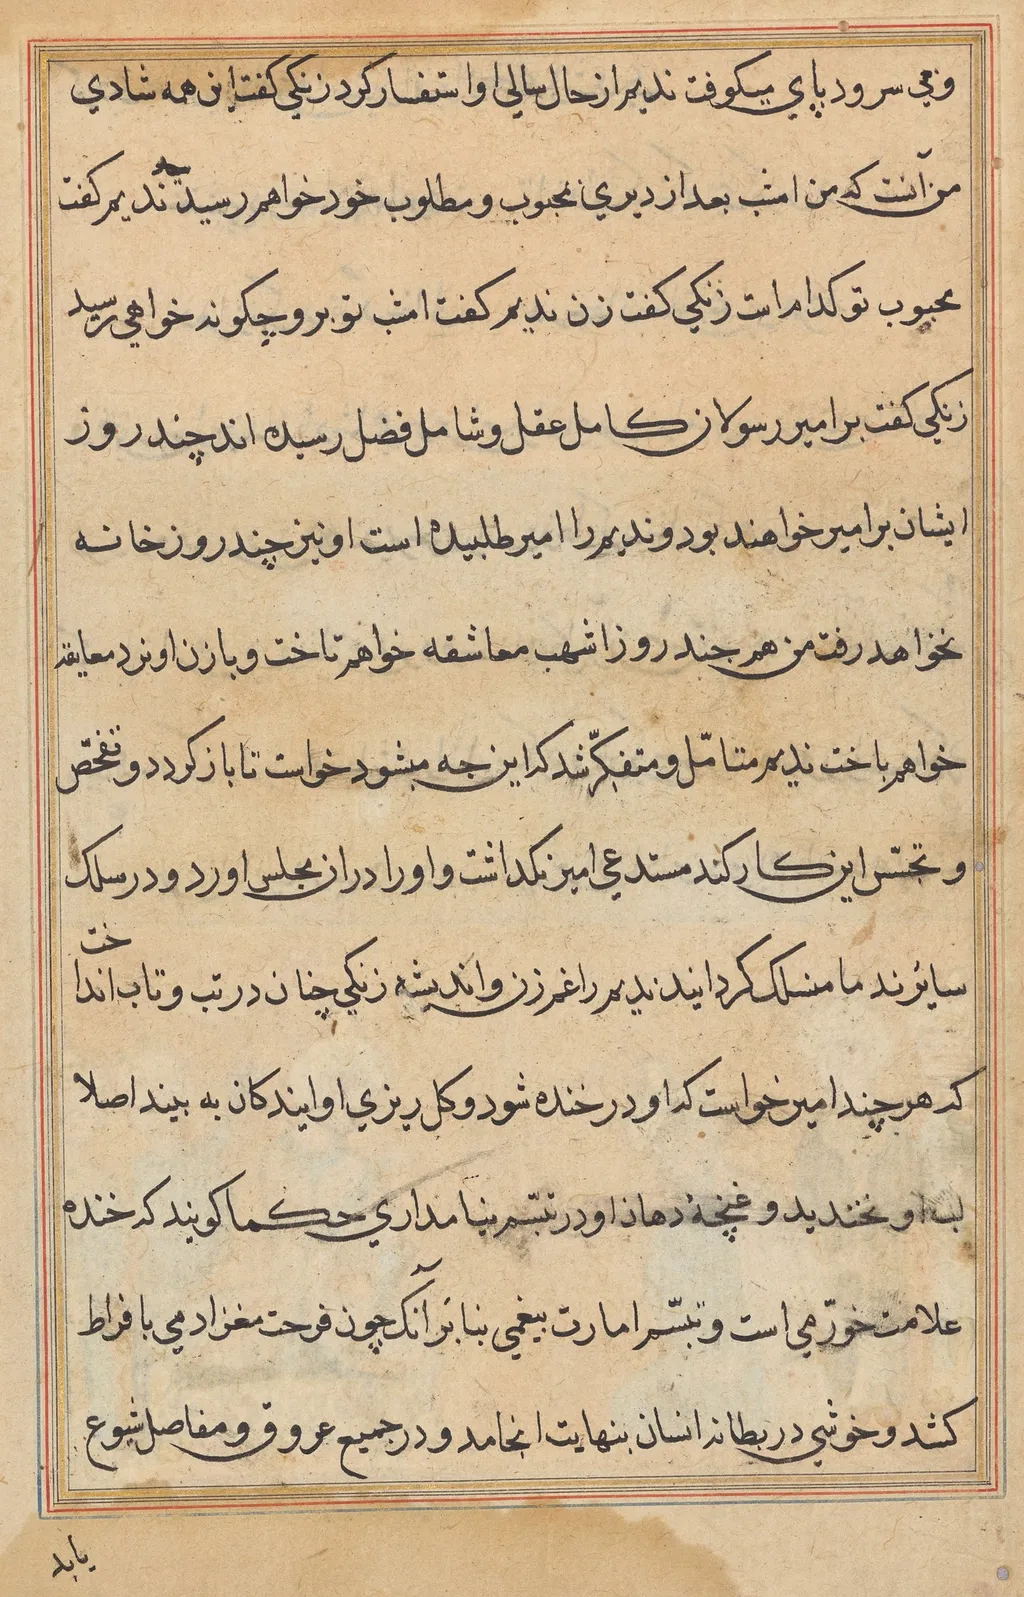 وفی سرود بپای میکوفت ندیم از حال سالی او استفسار کرد زنکی کفت این همه شادی
من آنست که من امشب بعد از دیری بمحبوب و مطلوب خود خواهم رسید ندیم کفت
محبوب تو کدام است زنکی کفت زن ندیم کفت امشب تو برو چکونه خواهی رسید
زنکی کفت بر امیر رسولان کامل عقل و شامل فضل رسیده اند چند روز
ایشان بر امیر خواهند بود و ندیم را امیر طلبیده است او نیز چند روز خانه
نخواهد رفت من هم چند روز اشهب معاشقه خواهم تاخت و با زن او نرد معانقه
خواهم باخت ندیم متامّل و متفکّر شد که این چه میشود خواست تا باز کردد و تفحّص
و تجسّس این کار کند مستدعی امیر نکذاشت و او را در ان مجلس اورد و در سلک
سائر ندما منسلک کردانیدند ندیم را غم زن و اندیشه زنکی چنان در تب و تاب انداخت
که هر چند امیر خواست که او در خنده شود و کل ریزی او ایندکان به بیند اصلا
لب او نخندید و غنچهٔ دهان او در تبسّم نیامد اری حکما کویند که خنده
علامت خورّمی است و تبسّم امارت بیغمی بنا بر آنک چون فرحت مغز ادمی با فراط
کشد و خوشی در بطانه انسان بنهایت انجامد و در جمیع عروق و مفاصل شیوع
یابد